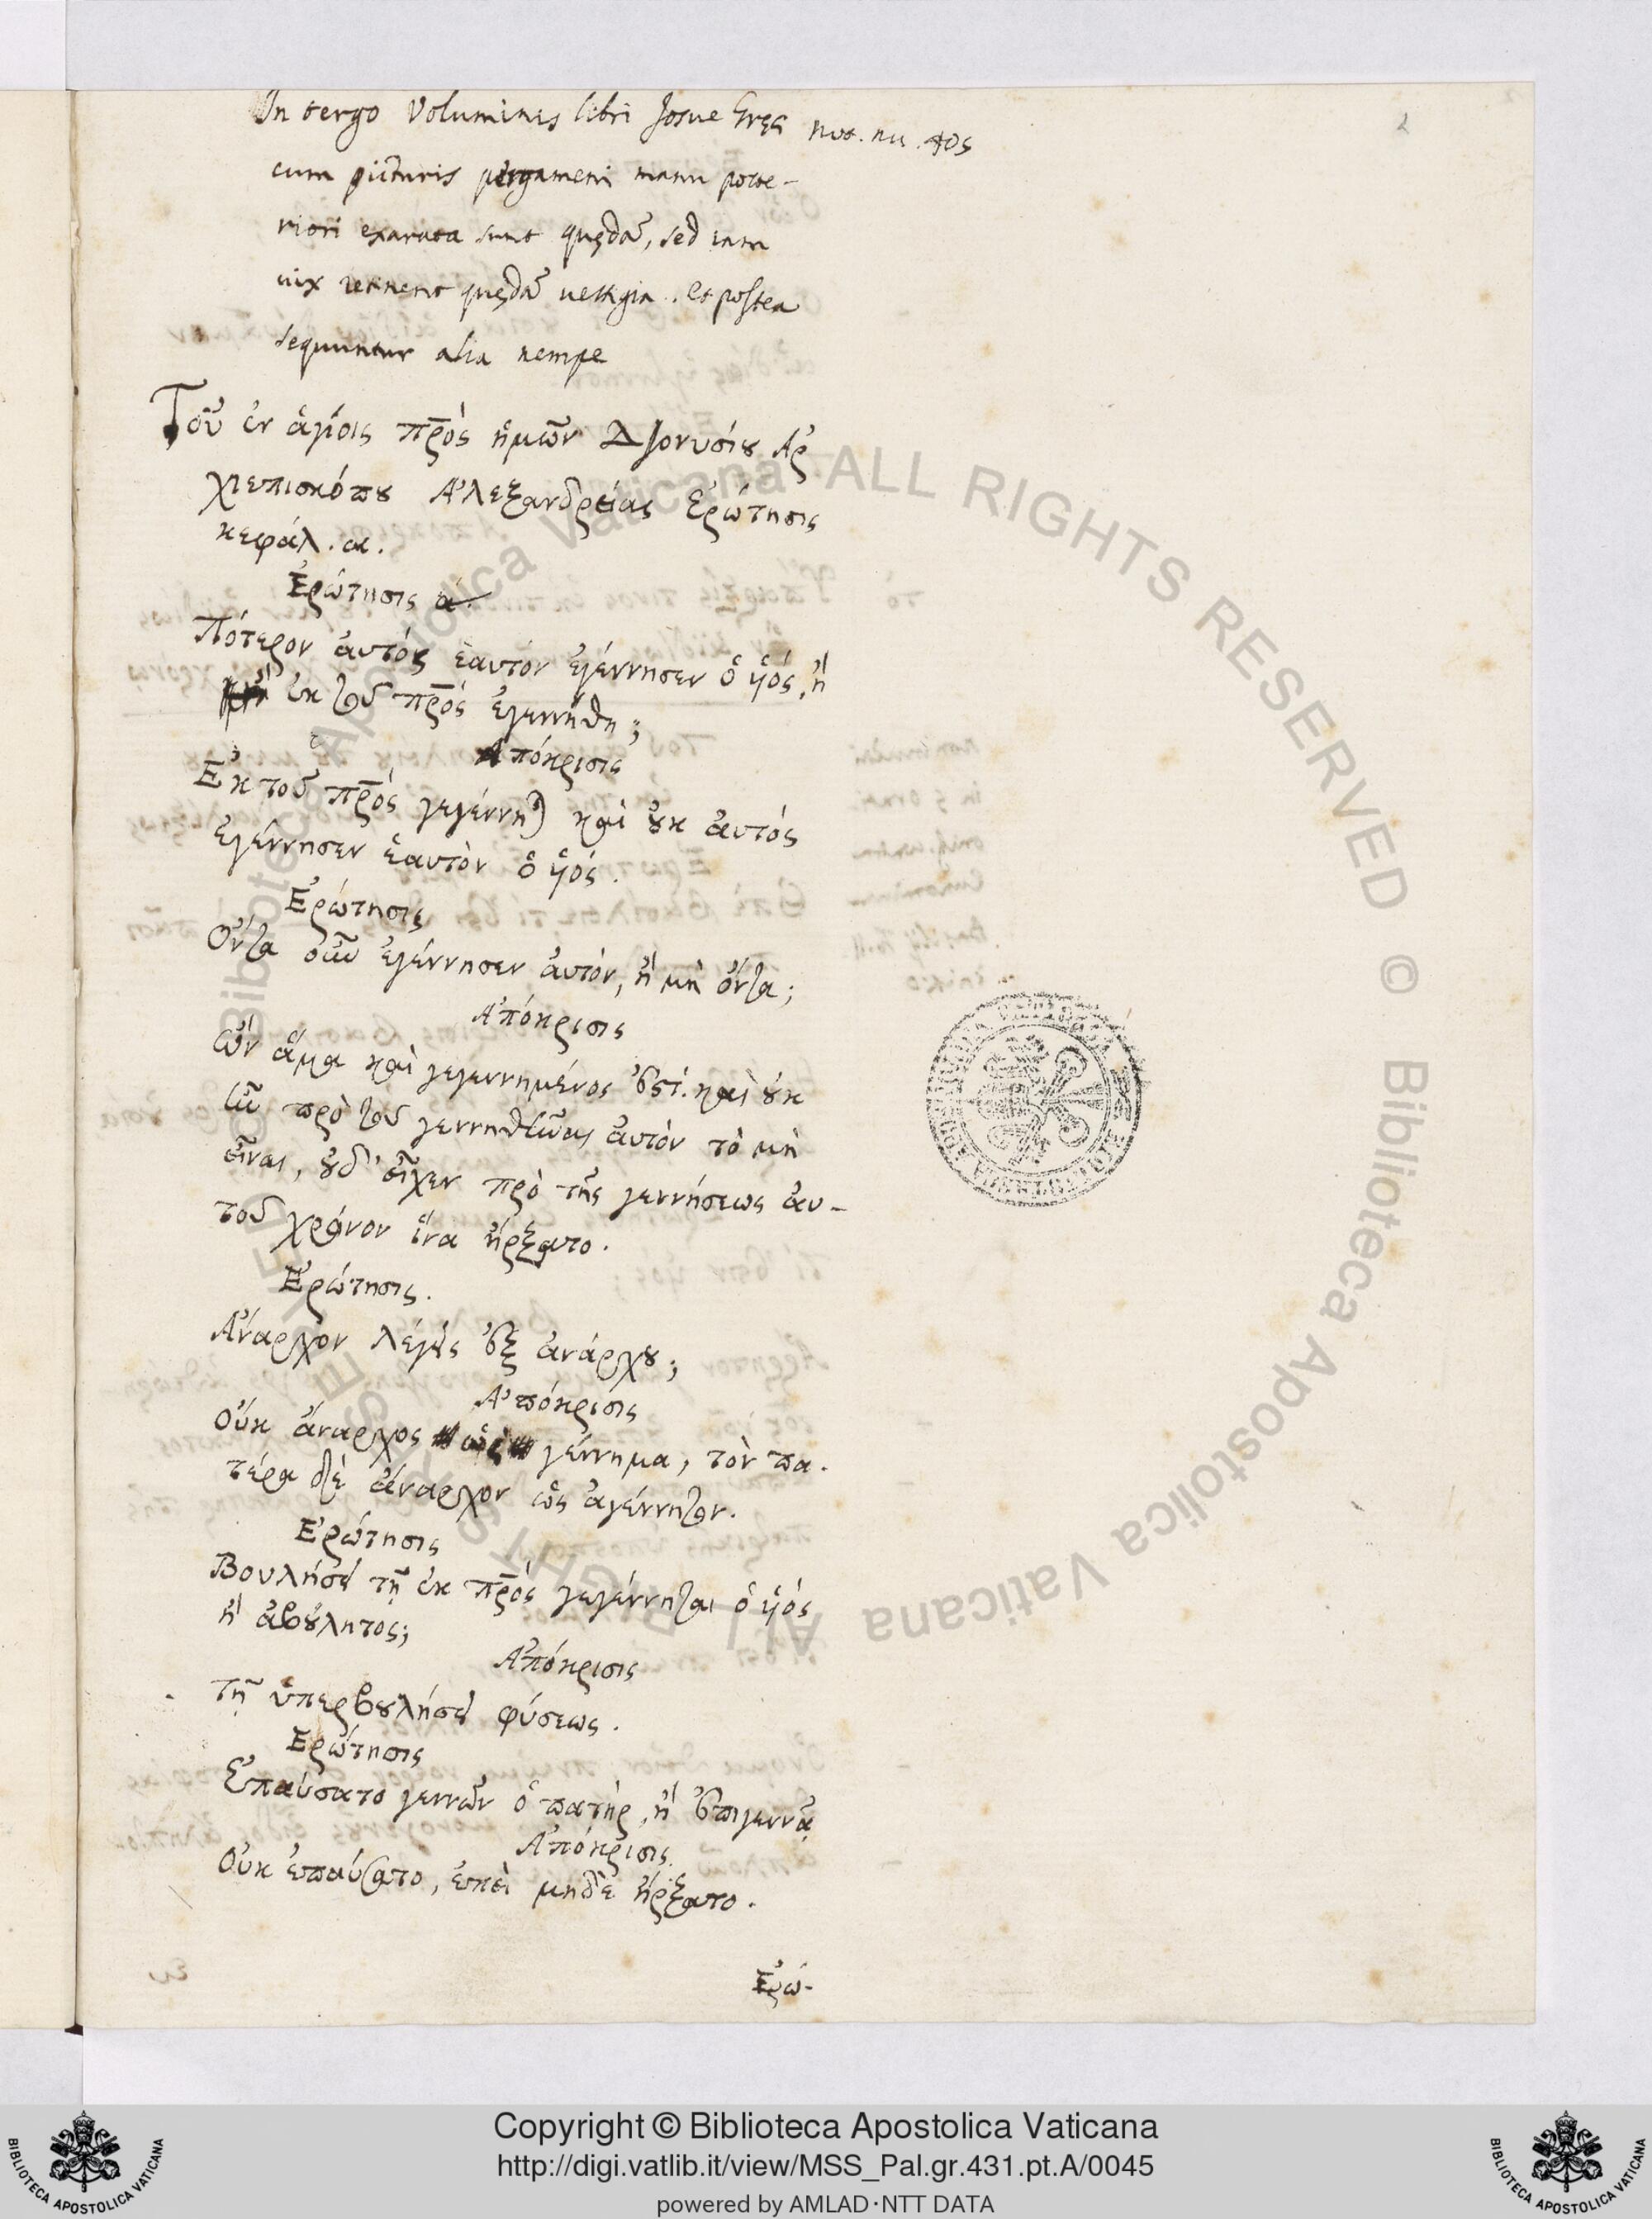 2
In tergo Voluminis libri Josue Gręc not. nu. 405
cum picturis pergameni manu poste-
riori exarata sunt quędā, sed iam
uix retinent quędā uestigia. et postea
sequuntur alia nempe
Τοῦ ἐν ἁγίοις πρ̅ὸς ἡμῶν Διονυσίου Ἀρ
χιεπισκόπου Ἀλεξανδρείας Ἐρώτησις
κεφάλ. α.
Ἐρώτησις ά.
Πότερον ἀυτός ἑαυτόν ἐγέννησεν ὁ ὑιός, ἢ
ἐκ τοῦ πρ̅ός ἐγεννήθη;
Ἀπόκρισις
Ἐκ τοῦ πρ̅ός γεγέννηται καὶ οὐκ ἀυτός
ἐγέννησεν ἑαυτὸν ὁ ὑιός.
Ἐρώτησις
Ὄντα οὖν ἐγέννησεν ἀυτὸν, ἢ μὴ ὄντα;
Ἀπόκρισις
Ὢν ἅμα καὶ γεγεννημένος ἐστί. καὶ οὐκ
ἦν πρὸ τοῦ γεννηθῆναι ἀυτὸν τὸ μὴ
εἶναι, οὐδ' εἶχεν πρὸ τῆς γεννήσεως ἀυ-
τοῦ χρόνον ἵνα ἤρξατο.
Ἐρώτησις.
Ἄναρχον λέγεις ἐξ ἀνάρχου;
Ἀπόκρισις
Οὐκ ἄναρχος ὡς γέννημα, τὸν πα-
τέρα δὲ ἄναρχον ὡς ἀγέννητον.
Ἐρώτησις
Βουλήσει τῇ ἐκ πρ̅ός γεγέννηται ὁ ὑιός
ἢ ἀβούλητος;
Ἀπόκρισις
Τῇ ὑπερβουλήσει φύσεως.
Ἐρώτησις
Ἐπαύσατο γεννῶν ὁ πατὴρ, ἢ ἐπιγεννᾷ
Ἀπόκρισις.
Οὐκ ἐπαύσατο, ἐπεὶ μηδὲ ἤρξατο.
Ἐρώ-
Biblioteca Apostolica Vaticana ALL RIGHTS RESERVED ©
Copyright © Biblioteca Apostolica Vaticana
http://digi.vatlib.it/view/MSS_Pal.gr.431.pt.A/0045
powered by AMLAD·NTT DATA
BIBLIOTECA APOSTOLICA VATICANA
BIBLIOTECA APOSTOLICA VATICANA